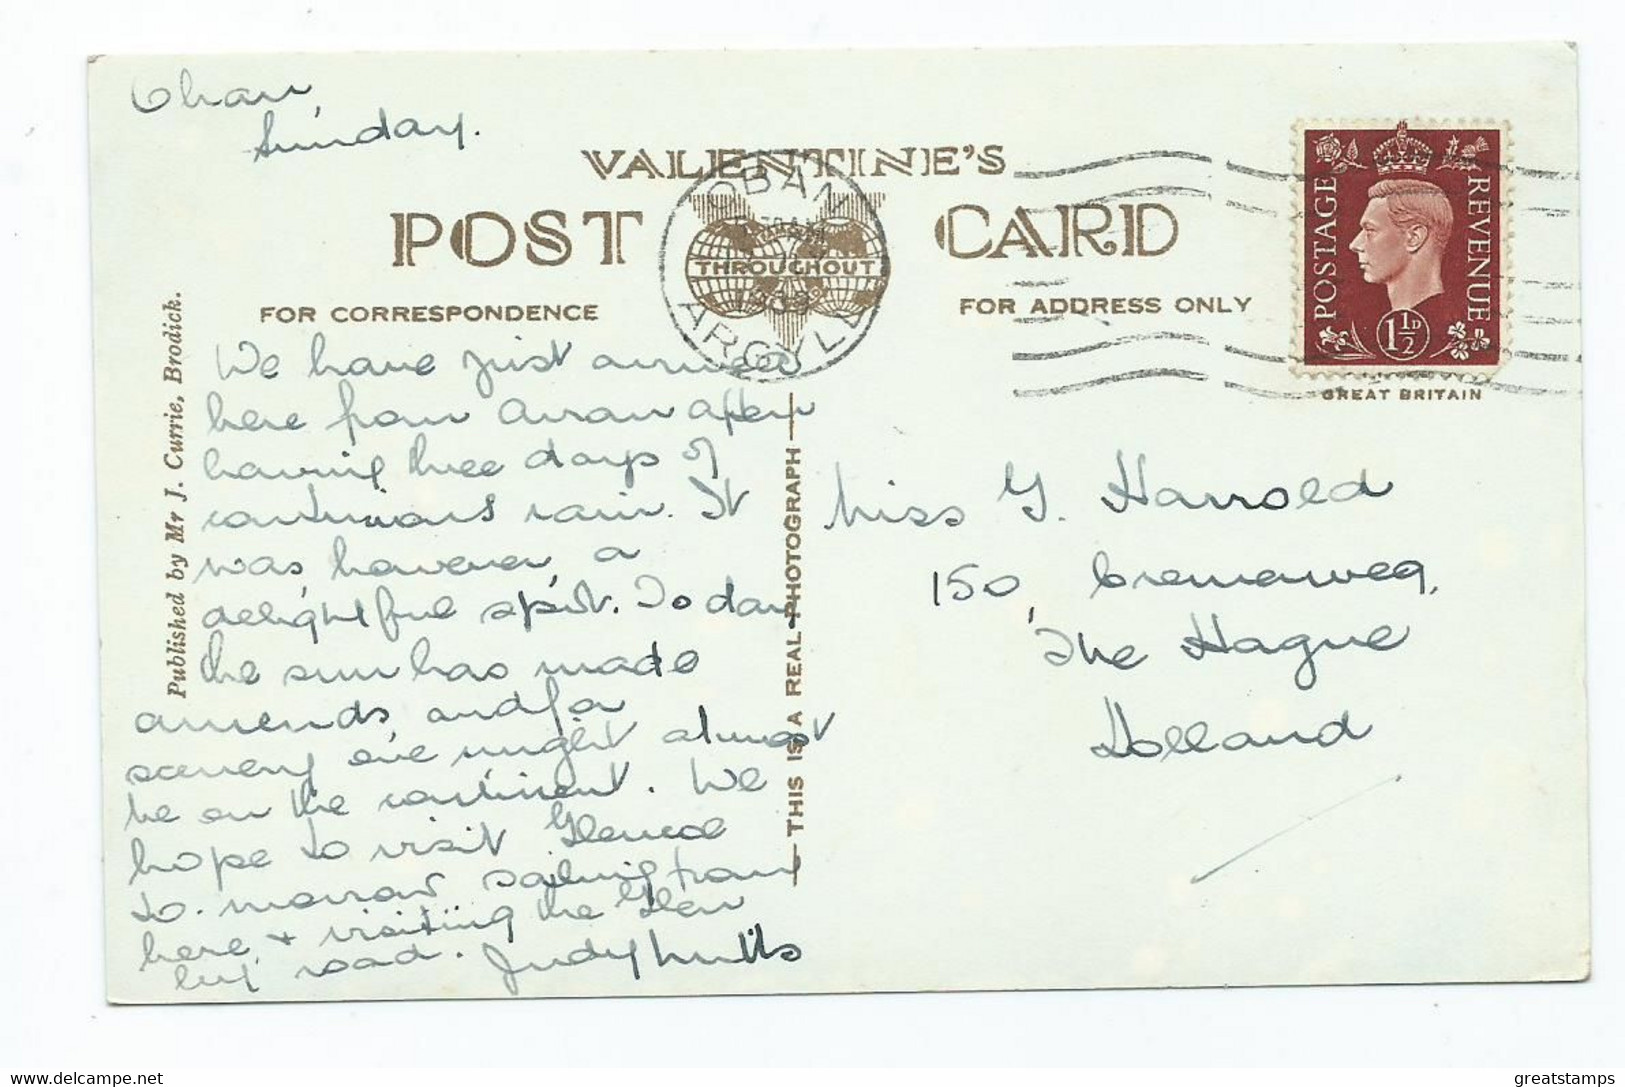 Oban,
Sunday.
VALENTINE'S
POST CARD
OBAN
ARGYLL
THROUGHOUT
FOR CORRESPONDENCE
FOR ADDRESS ONLY
POSTAGE
REVENUE
1½D
GREAT BRITAIN
Published by Mr J. Currie, Brodick.
THIS IS A REAL PHOTOGRAPH
We have just arrived
here from Arran after
having three days of
continuous rain. It
was, however, a
delightful spot. To day
the sun has made
amends and for
scenery one might almost
be on the continent. We
hope to visit Glencoe
to-morrow sailing from
here + visiting the Glen
by road. Judy
Miss G. Harrold
150,
The Hague
Holland
greatstamps